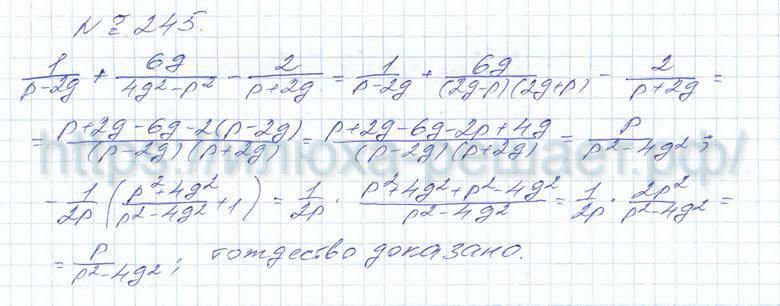 № 245.
1/(p-2g) + 6g/(4g²-p²) - 2/(p+2g) = 1/(p-2g) + 6g/((2g-p)(2g+p)) - 2/(p+2g) =
= (p+2g-6g-2(p-2g))/((p-2g)(p+2g)) = (p+2g-6g-2p+4g)/((p-2g)(p+2g)) = p/(p²-4g²);
- 1/2p ((p²+4g²)/(p²-4g²) + 1) = 1/2p · (p²+4g²+p²-4g²)/(p²-4g²) = 1/2p · 2p²/(p²-4g²) =
= p/(p²-4g²); тождество доказано.
https://илюха-решает.рф/